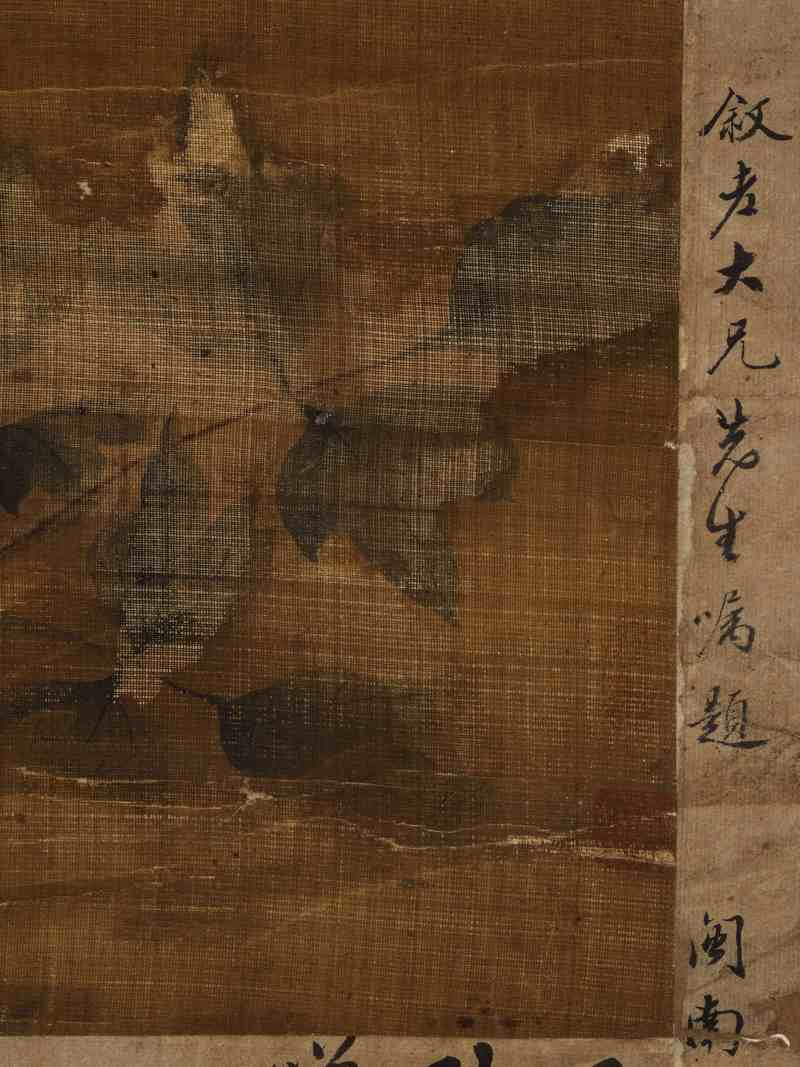 敘老大兄先生嘱題
閩南